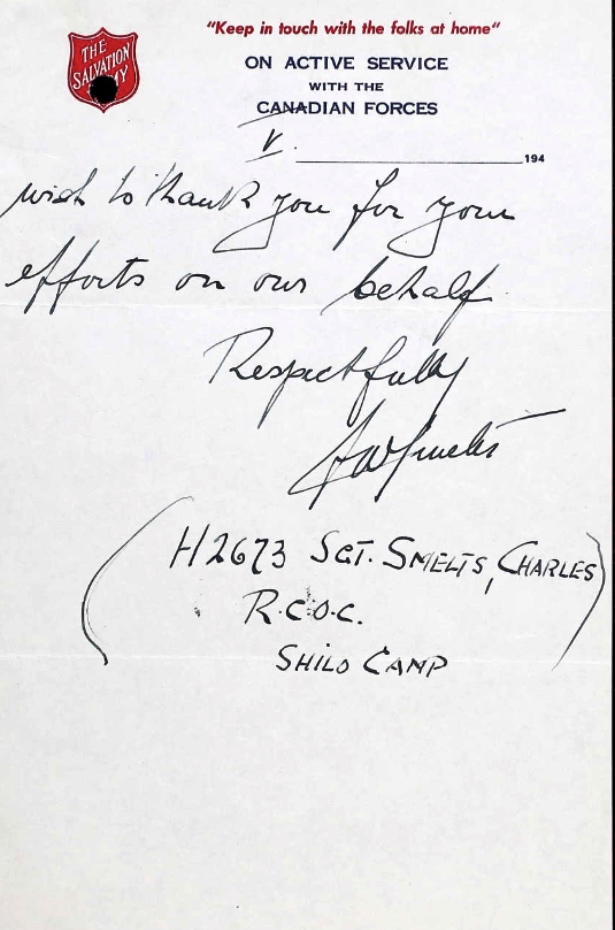 THE
SALVATION
"Keep in touch with the folks at home"
ON ACTIVE SERVICE
WITH THE
CANADIAN FORCES
V.
194
wish to thank you for your
efforts on our behalf
Respectfully
(H2673 SGT. SMELTS, CHARLES)
R.C.O.C.
SHILO CAMP